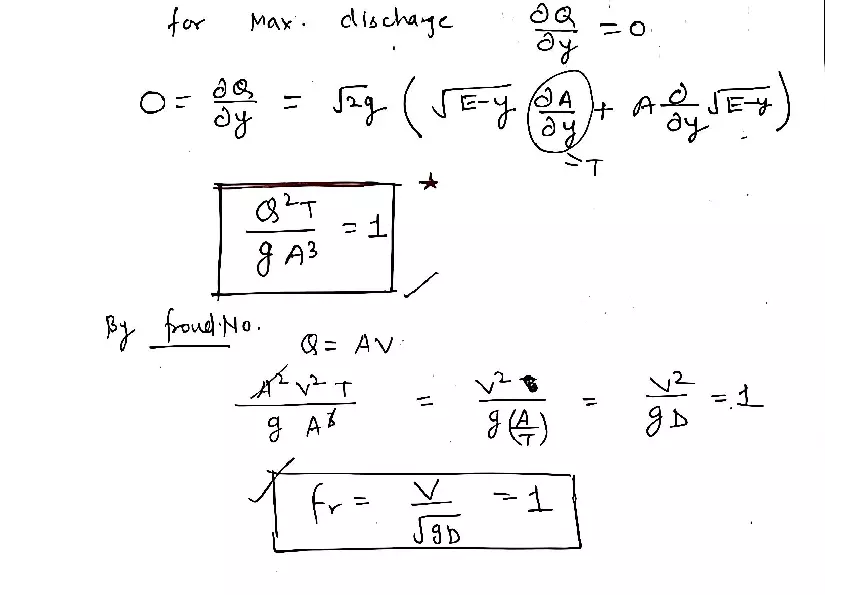 for Max. discharge ∂Q/∂y = 0
0 = ∂Q/∂y = √2g ( √E-y ∂A/∂y + A ∂/∂y √E-y )
= T
Q²T / g A³ = 1 ★
By froud. No.
Q = AV
A² V² T / g A³ = V² / g(A/T) = V² / gD = 1
fr = V / √gD = 1